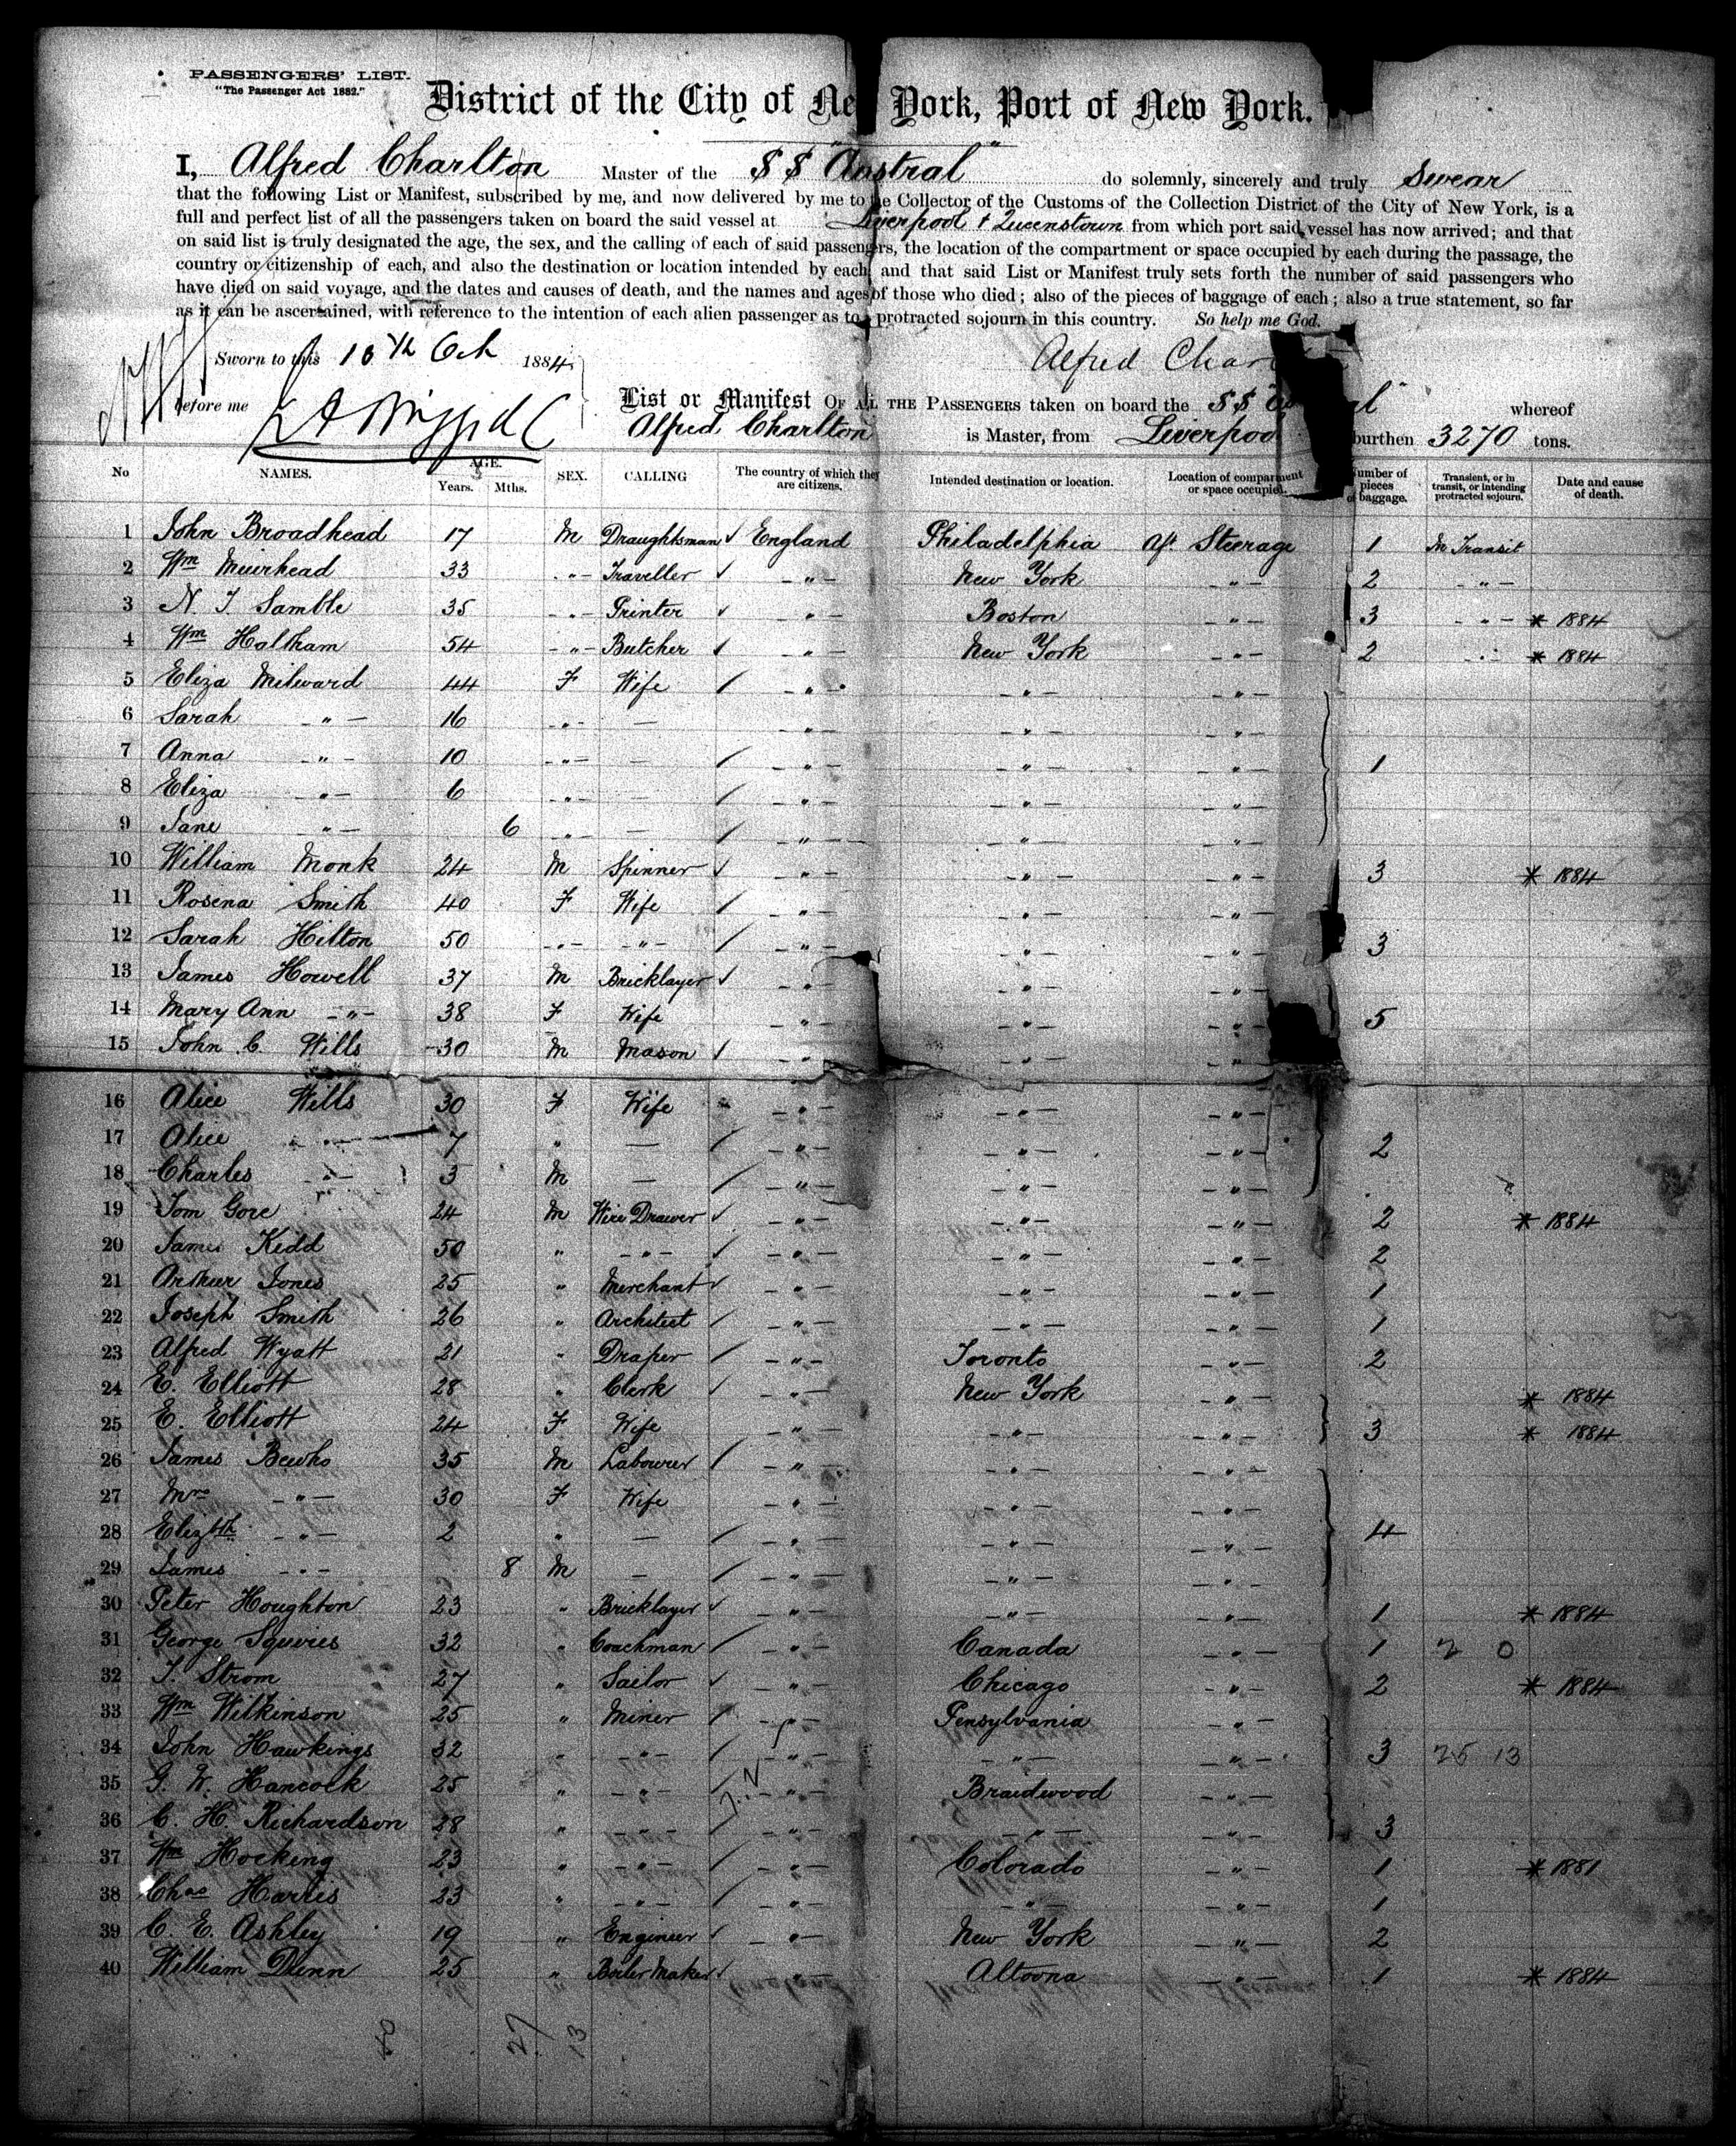 PASSENGERS' LIST.
"The Passenger Act 1882."
District of the City of New York, Port of New York.
I, Alfred Charlton Master of the S S "Austral" do solemnly, sincerely and truly Swear
that the following List or Manifest, subscribed by me, and now delivered by me to the Collector of the Customs of the Collection District of the City of New York, is a
full and perfect list of all the passengers taken on board the said vessel at Liverpool & Queenstown from which port said vessel has now arrived; and that
on said list is truly designated the age, the sex, and the calling of each of said passengers, the location of the compartment or space occupied by each during the passage, the
country or citizenship of each, and also the destination or location intended by each and that said List or Manifest truly sets forth the number of said passengers who
have died on said voyage, and the dates and causes of death, and the names and ages of those who died; also of the pieces of baggage of each; also a true statement, so far
as it can be ascertained, with reference to the intention of each alien passenger as to protracted sojourn in this country. So help me God.
Sworn to this 10th Oct 1884 Alfred Char
before me
List or Manifest OF ALL THE PASSENGERS taken on board the S S "Austral" whereof
Alfred Charlton is Master, from Liverpool burthen 3270 tons.
No NAMES. AGE. Years. Mths. SEX. CALLING The country of which they are citizens. Intended destination or location. Location of compartment or space occupied. Number of pieces of baggage. Transient, or in transit, or intending protracted sojourn. Date and cause of death.
1 John Broadhead 17 M Draughtsman ✓ England Philadelphia Aft Steerage 1 In Transit
2 Wm Muirhead 33 -"- Traveller ✓ -"- New York -"- 2 -"-
3 N. J. Samble 35 -"- Printer ✓ -"- Boston -"- 3 -"- * 1884
4 Wm Haltham 54 -"- Butcher ✓ -"- New York -"- 2 -"- * 1884
5 Eliza Milward 44 F Wife / -"- -"- -"-
6 Sarah -"- 16 -"- — -"- -"- -"-
7 Anna -"- 10 -"- — / -"- -"- -"- 1
8 Eliza -"- 6 -"- — / -"- -"- -"-
9 Jane -"- 6 -"- — / -"- -"- -"-
10 William Monk 24 M Spinner ✓ -"- -"- -"- 3 * 1884
11 Rosena Smith 40 F Wife / -"- -"- -"-
12 Sarah Hilton 50 -"- -"- / -"- -"- -"- 3
13 James Howell 37 M Bricklayer ✓ -"- -"- -"-
14 Mary Ann -"- 38 F Wife -"- -"- -"- 5
15 John C. Wills 30 M Mason ✓ -"- -"- -"-
16 Alice Wills 30 F Wife -"- -"- -"-
17 Alice -"- 7 " — / -"- -"- -"- 2
18 Charles -"- 3 M — / -"- -"- -"-
19 Tom Gore 24 M Wire Drawer ✓ -"- -"- -"- 2 * 1884
20 James Kedd 50 " -"- ✓ -"- -"- -"- 2
21 Arthur Jones 25 " Merchant ✓ -"- -"- -"- 1
22 Joseph Smith 26 " Architect / -"- -"- -"- 1
23 Alfred Wyatt 21 " Draper / -"- Toronto -"- 2
24 E. Elliott 28 " Clerk ✓ -"- New York -"- * 1884
25 E. Elliott 24 F Wife -"- -"- -"- 3 * 1884
26 James Bewhs 35 M Labourer / -"- -"- -"-
27 Mrs -"- 30 F Wife -"- -"- -"-
28 Elizbth -"- 2 " — / -"- -"- -"- 4
29 James -"- 8 M — / -"- -"- -"-
30 Peter Houghton 23 " Bricklayer ✓ -"- -"- -"- 1 * 1884
31 George Squires 32 " Coachman / -"- Canada -"- 1 2 0
32 J. Strom 27 " Sailor ✓ -"- Chicago -"- 2 * 1884
33 Wm Wilkinson 25 " Miner / -"- Pensylvania -"-
34 John Hawkings 32 " -"- / -"- -"- -"- 3 25 13
35 G. W. Hancock 25 " -"- / -"- Braidwood -"-
36 C. H. Richardson 28 " -"- / -"- -"- -"- 3
37 Wm Hocking 23 " -"- / -"- Colorado -"- 1 * 1881
38 Chas Harris 23 " -"- / -"- -"- -"- 1
39 C. E. Ashley 19 " Engineer / -"- New York -"- 2
40 William Dunn 25 " Boiler Maker ✓ -"- Altoona -"- 1 * 1884
40 27 13